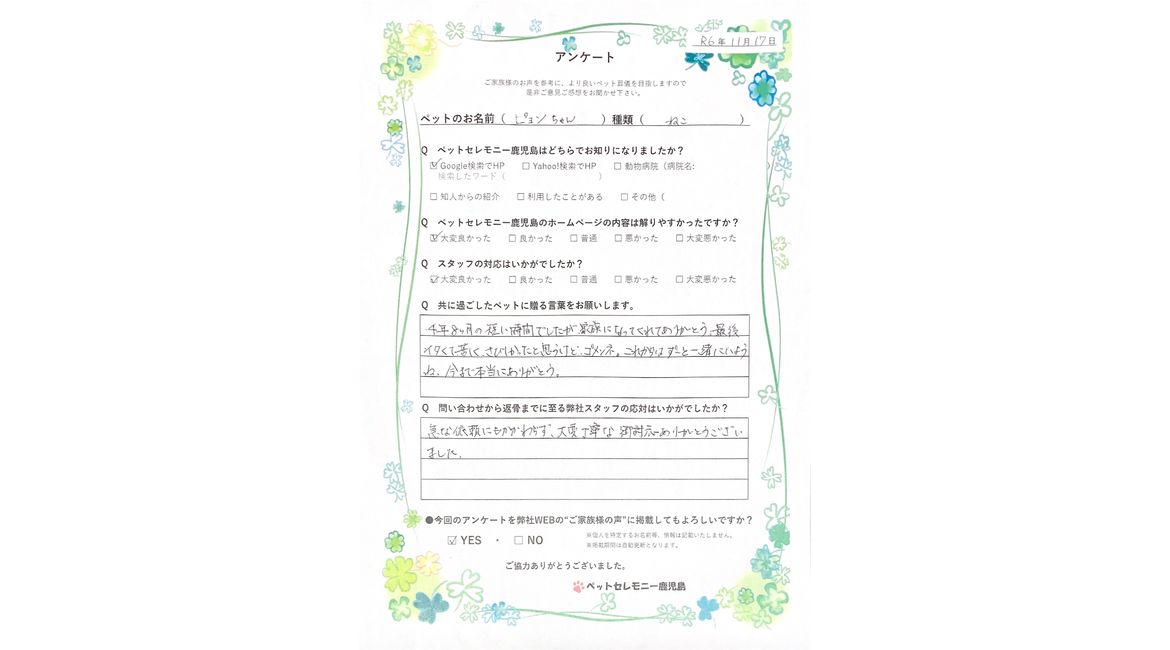 R6年 11月 17日
アンケート
ご家族様のお声を参考に、より良いペット葬儀を目指しますので
是非ご意見ご感想をお聞かせ下さい。
ペットのお名前（ ピョンちゃん ）種類（ ねこ ）
Q ペットセレモニー鹿児島はどちらでお知りになりましたか？
☑ Google検索でHP □ Yahoo!検索でHP □ 動物病院（病院名: ）
検索したワード（ ）
□ 知人からの紹介 □ 利用したことがある □ その他（
Q ペットセレモニー鹿児島のホームページの内容は解りやすかったですか？
☑ 大変良かった □ 良かった □ 普通 □ 悪かった □ 大変悪かった
Q スタッフの対応はいかがでしたか？
☑ 大変良かった □ 良かった □ 普通 □ 悪かった □ 大変悪かった
Q 共に過ごしたペットに贈る言葉をお願いします。
4年8ヶ月の短い時間でしたが家族になってくれてありがとう、最後
イタくて苦しく、さびしかったと思うけど、ゴメンネ。これからはずーと一緒にいよう
ね、今まで本当にありがとう。
Q 問い合わせから返骨までに至る弊社スタッフの応対はいかがでしたか？
急な依頼にもかかわらず、大変丁寧な御対応ありがとうござい
ました。
●今回のアンケートを弊社WEBの“ご家族様の声”に掲載してもよろしいですか？
☑ YES ・ □ NO
※個人を特定するお名前等、情報は記載いたしません。
※掲載期間は自動更新となります。
ご協力ありがとうございました。
ペットセレモニー鹿児島